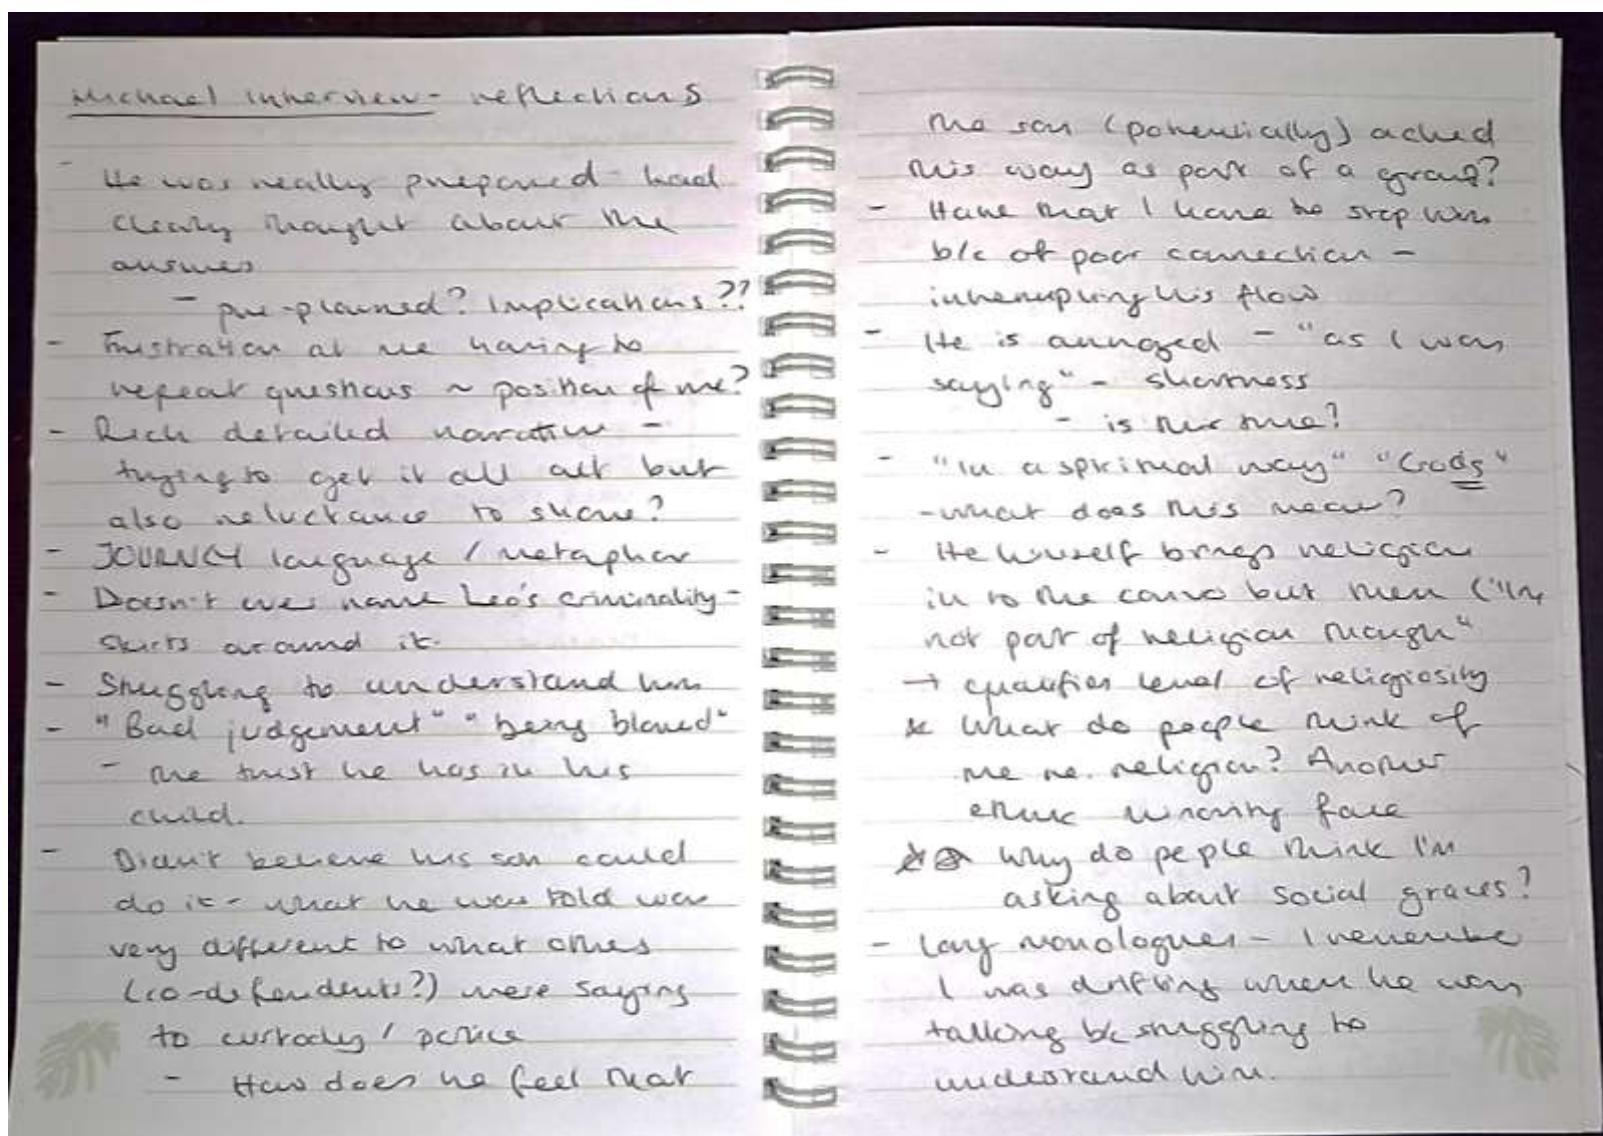 Michael interview - reflections
- He was really prepared - had
clearly thought about the
answers
- pre-planned? Implications??
- Frustration at me having to
repeat questions ~ position of me?
- Rich detailed narrative -
trying to get it all out but
also reluctance to share?
- JOURNEY language / metaphor
- Doesn't ever name Leo's criminality -
skirts around it.
- Struggling to understand him
- "Bad judgement" "being blamed"
- the trust he has in his
child.
- Didn't believe his son could
do it - what he was told was
very different to what others
(co-defendents?) were saying
to custody / police
- How does he feel that
the son (potentially) acted
this way as part of a group?
- Hate that I have to stop him
b/c of poor connection -
interrupting his flow
- He is annoyed - "as I was
saying" - shortness
- is this true?
- "In a spiritual way" "Gods"
- what does this mean?
- He himself brings religion
in to the convo but then ("I'm
not part of religion though"
→ qualifies level of religiosity
* What do people think of
me re. religion? Another
ethnic minority face
* Why do peple think I'm
asking about social graces?
- Long monologues - I remember
I was drifting when he was
talking bc struggling to
understand him.